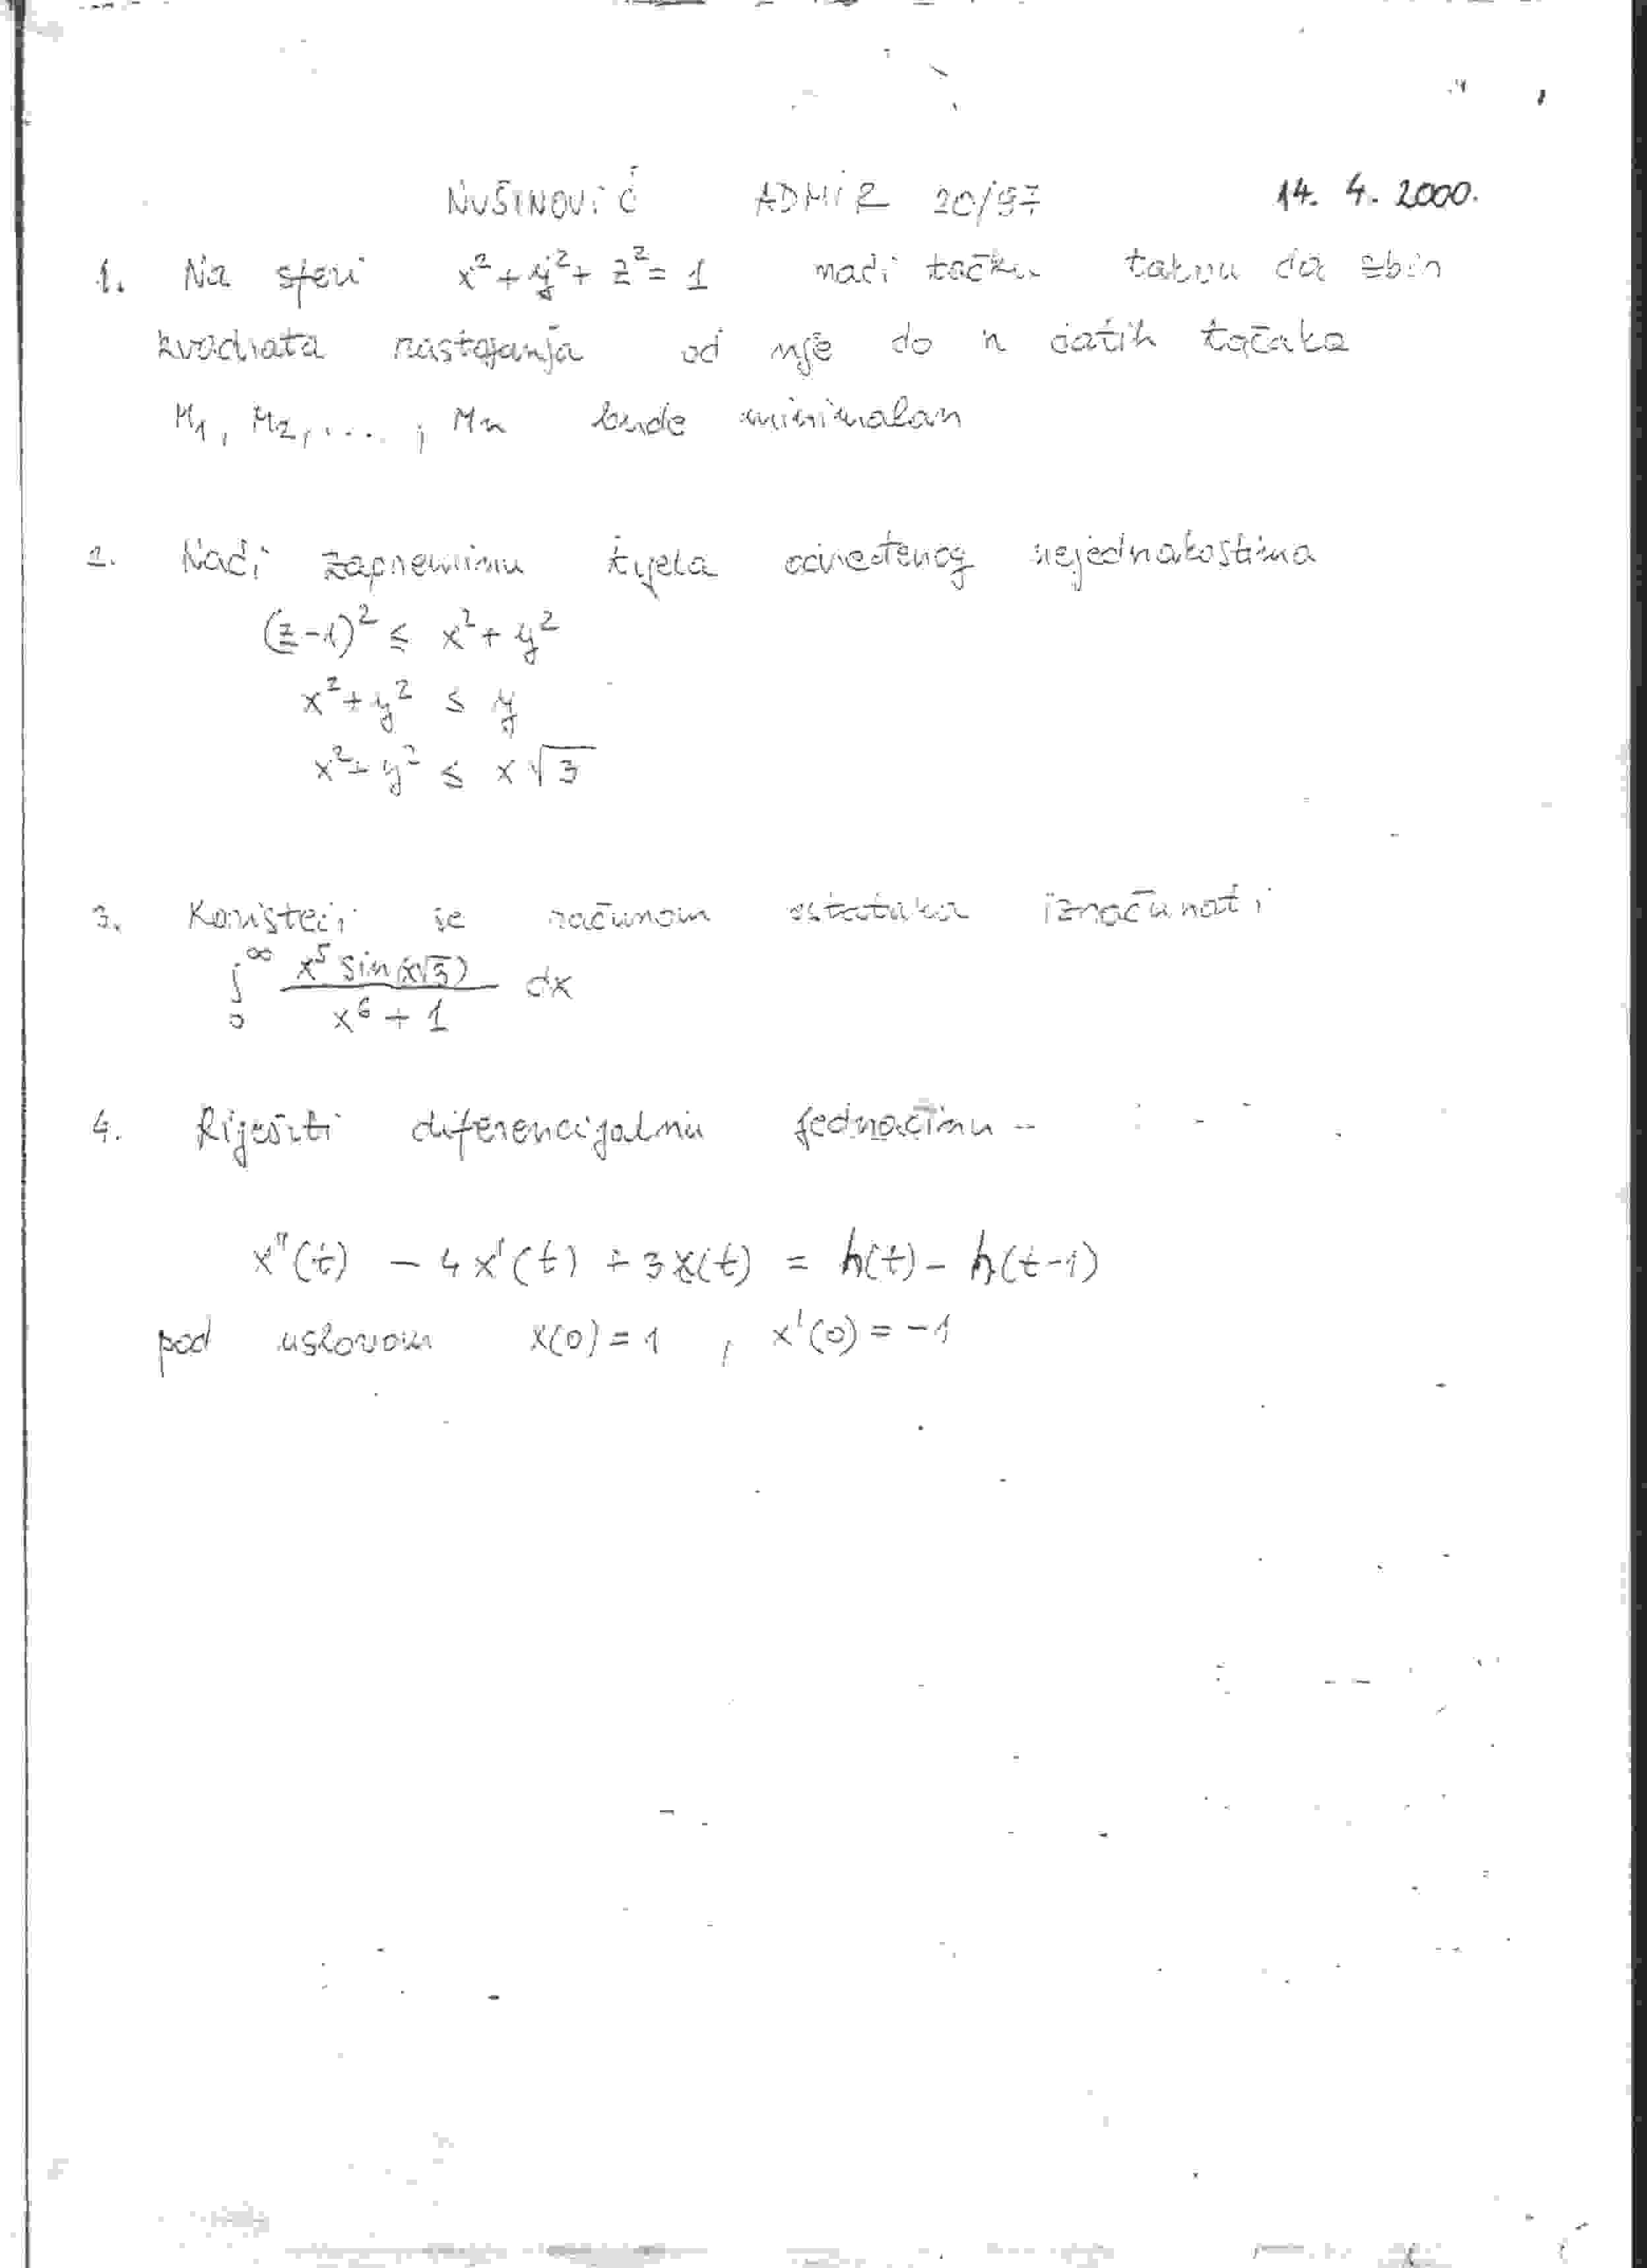 NUŠINOVIĆ ADMIR 20/97 14. 4. 2000.
1. Na sferi x²+y²+z²=1 naći tačku takvu da zbir
kvadrata rastojanja od nje do n datih tačaka
M₁, M₂, ...., Mn bude minimalan
2. Naći zapreminu tijela određenog nejednakostima
(z-1)² ≤ x²+y²
x²+y² ≤ y
x²+y² ≤ x√3
3. Koristeći se računom ostataka izračunati
∫₀^∞ x⁵ sin(x√3) / (x⁶+1) dx
4. Riješiti diferencijalnu jednačinu
x"(t) - 4x'(t) + 3x(t) = h(t) - h(t-1)
pod uslovom x(0)=1, x'(0)=-1